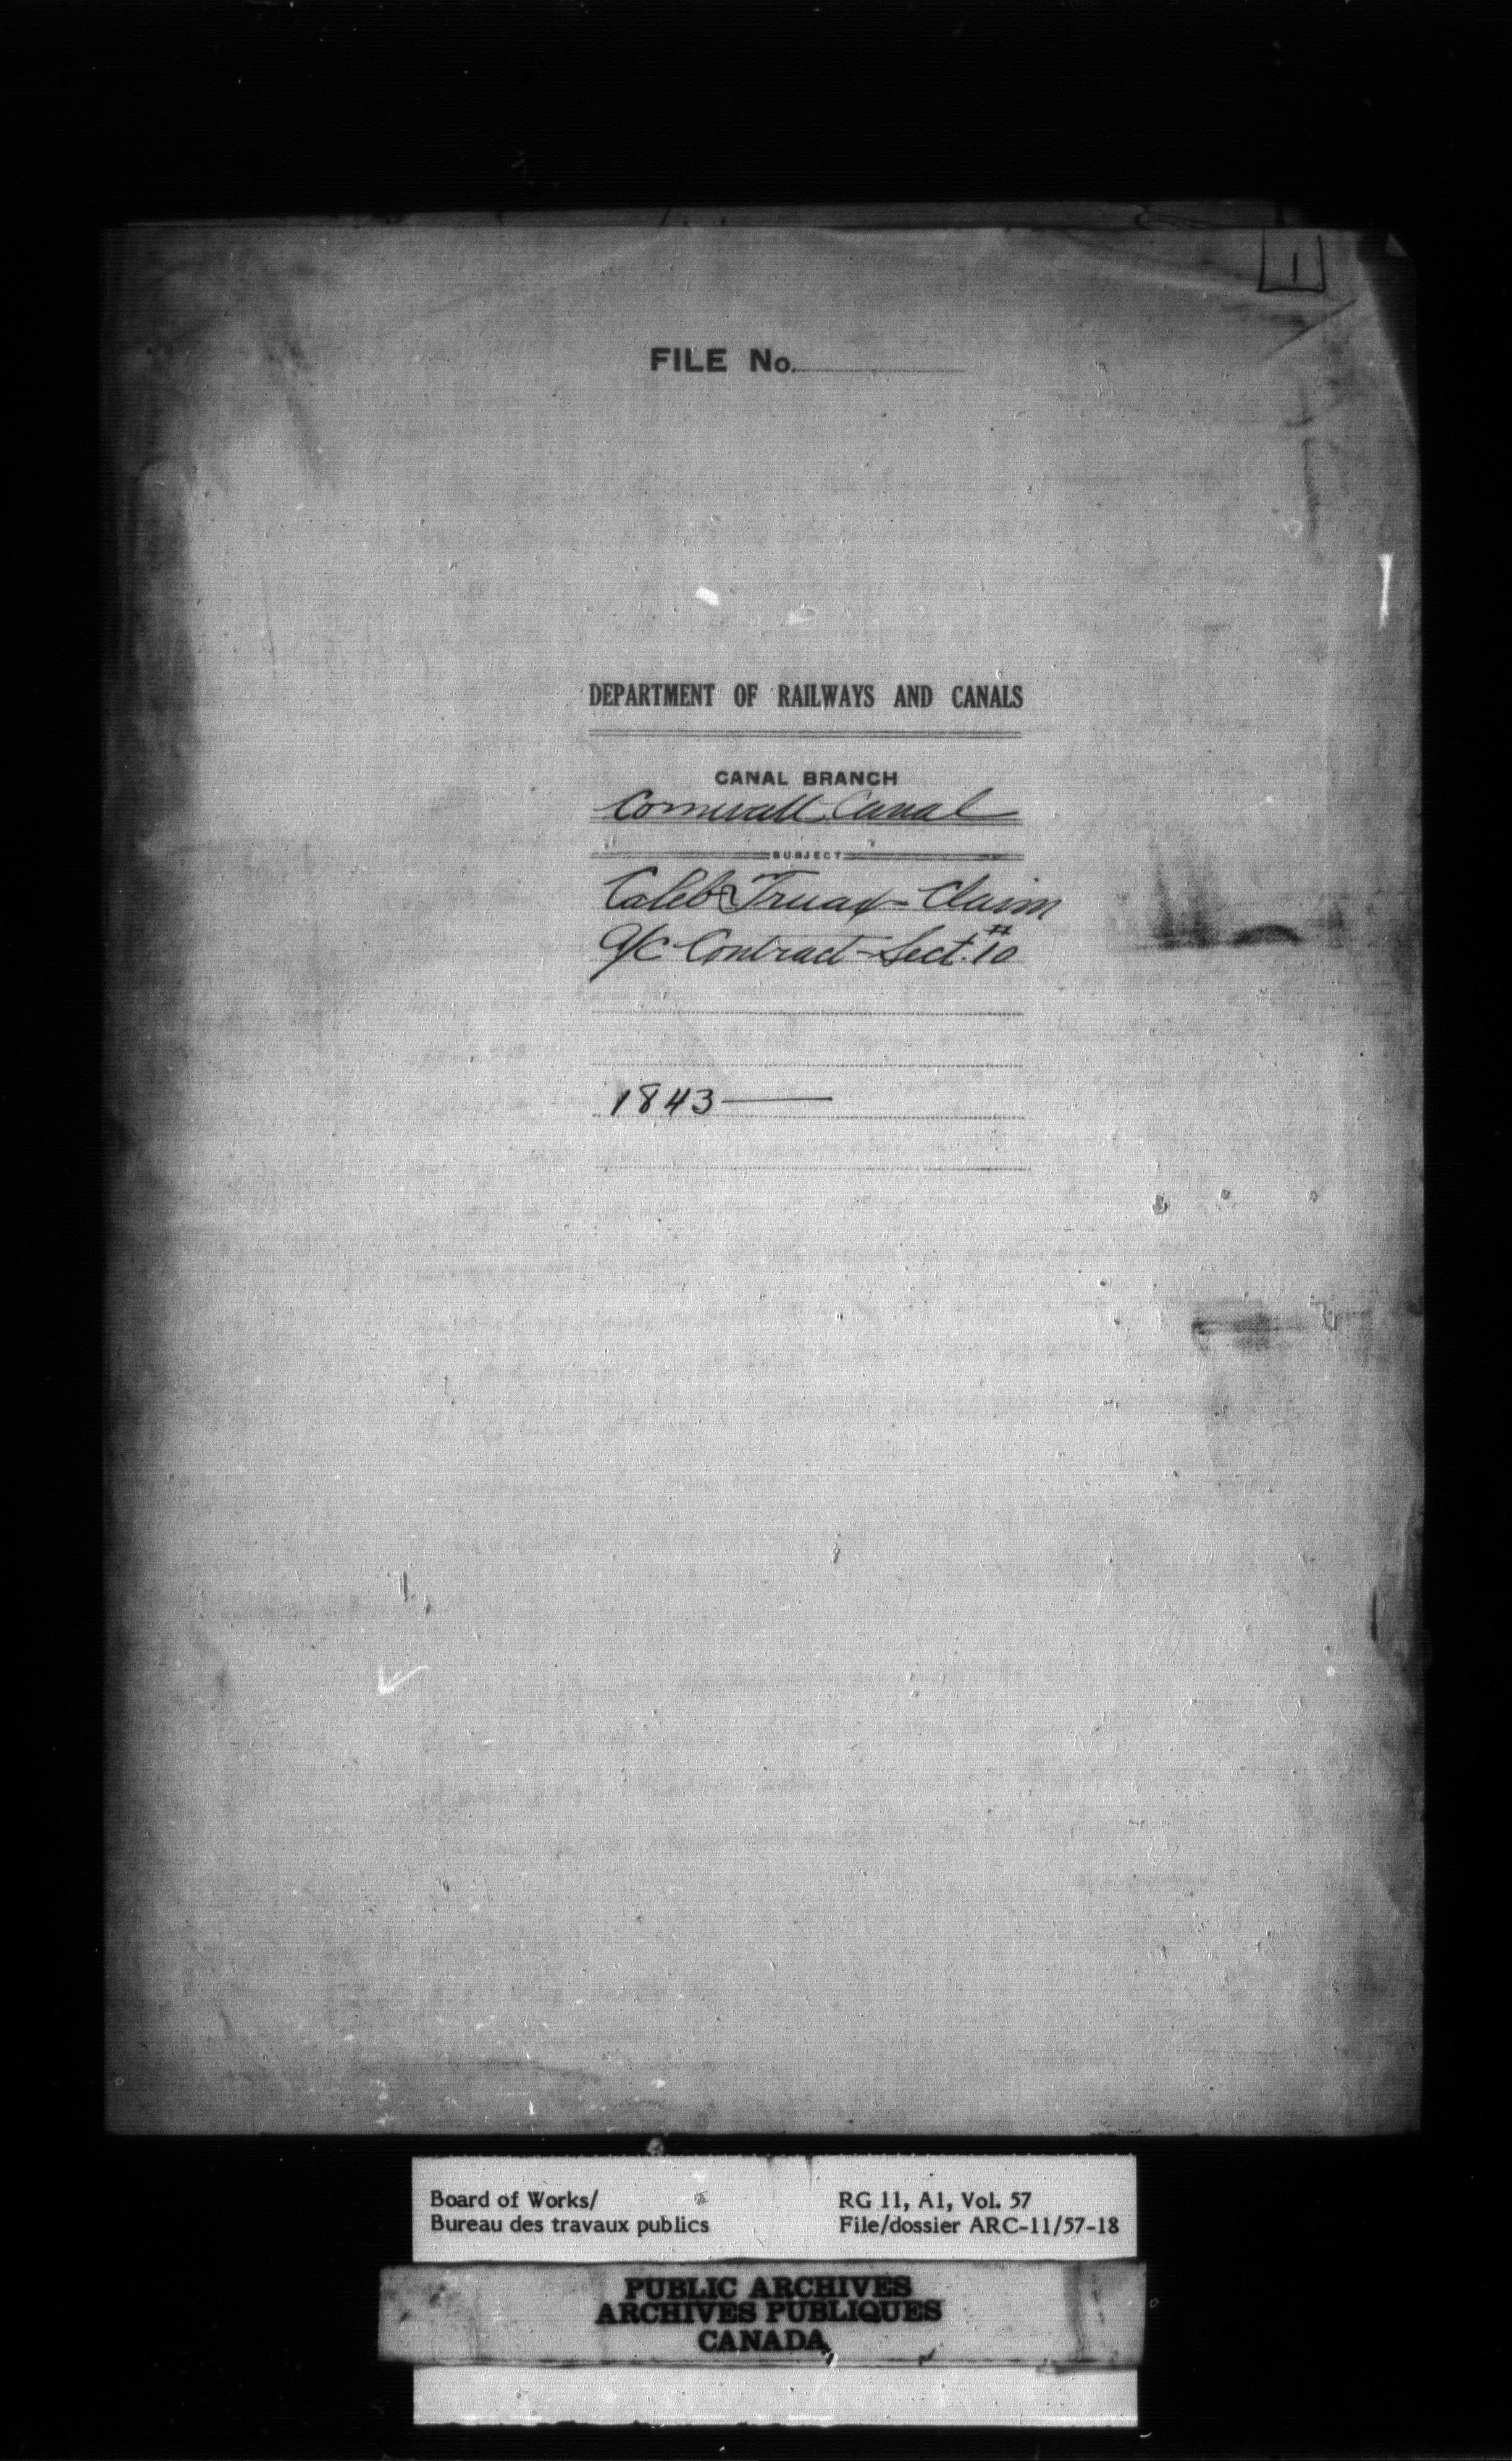 1
FILE No.
DEPARTMENT OF RAILWAYS AND CANALS
CANAL BRANCH
Cornwall Canal
SUBJECT
Caleb Truax - Claim
a/c Contract - Sect. #10
1843 —
Board of Works/
Bureau des travaux publics
RG 11, A1, Vol. 57
File/dossier ARC-11/57-18
PUBLIC ARCHIVES
ARCHIVES PUBLIQUES
CANADA